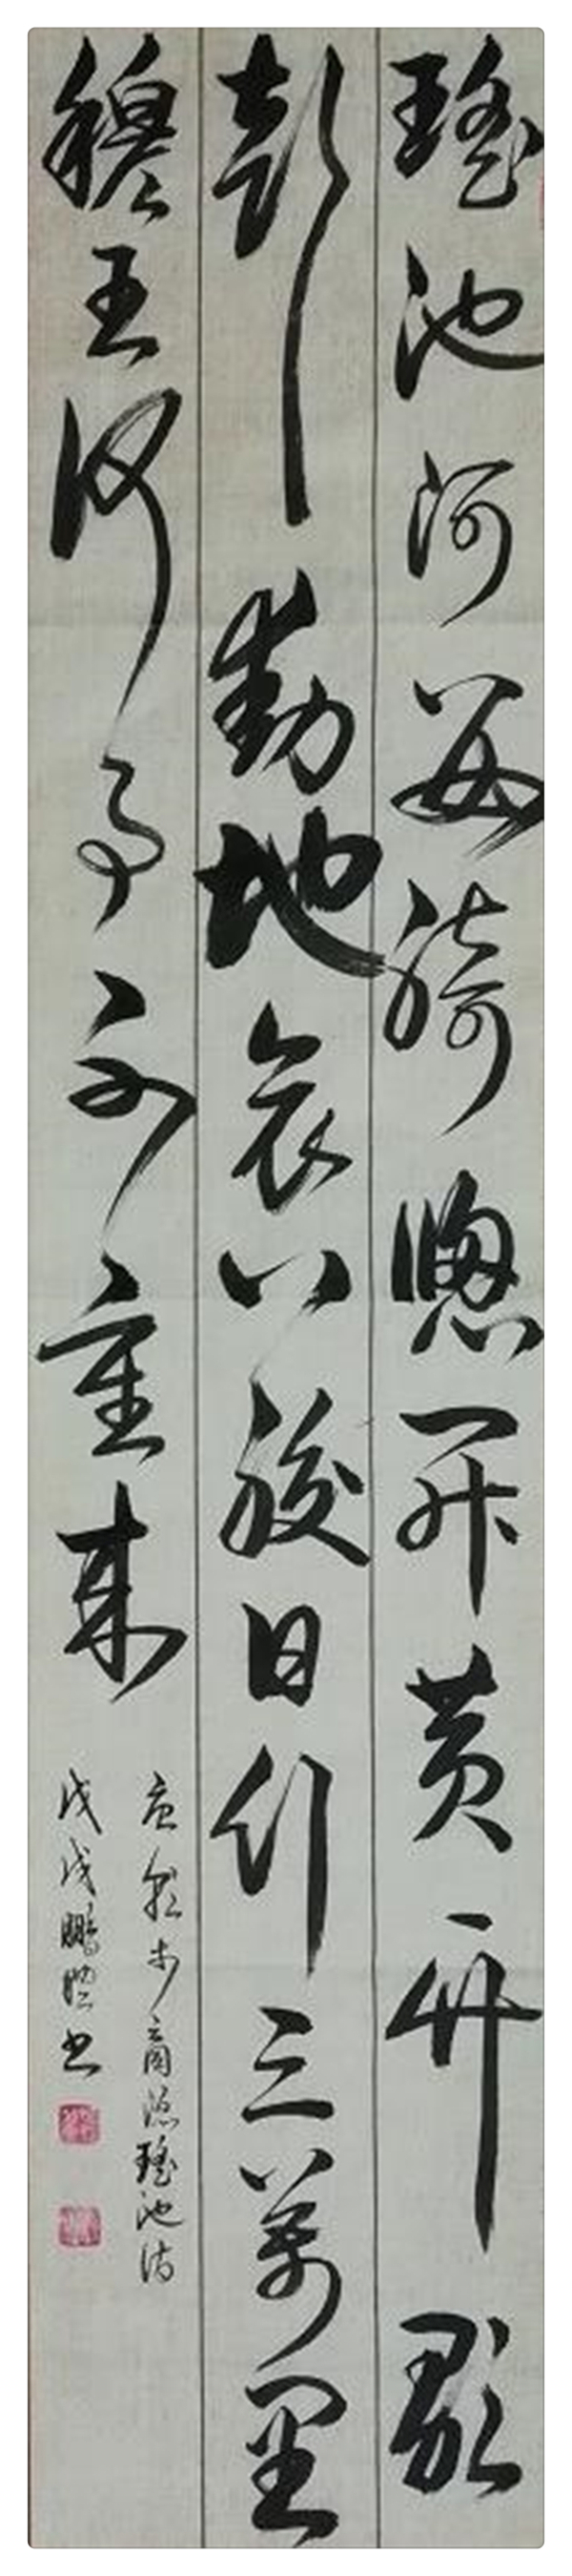 瑤池阿母綺窗開黃竹歌
聲動地哀八駿日行三萬里
穆王何事不重來
李商隱瑤池詩
戊戌鵬書